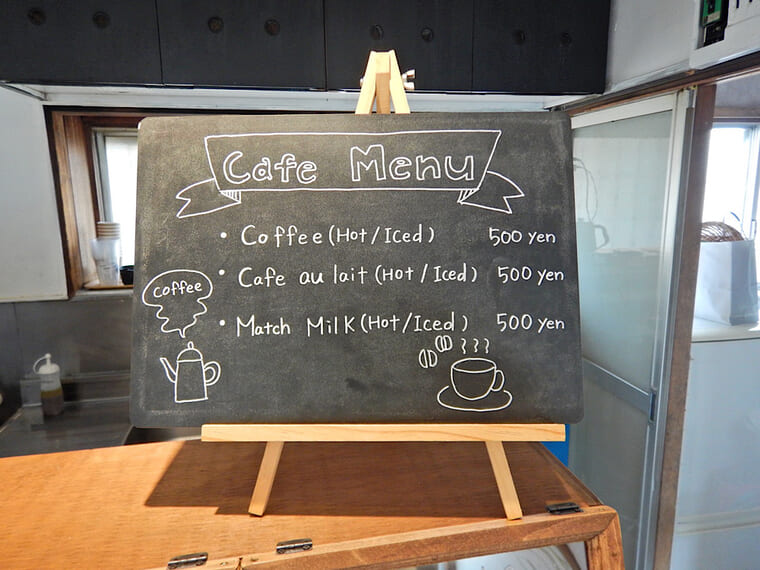 Cafe Menu
• Coffee (Hot/Iced) 500 yen
• Cafe au lait (Hot/Iced) 500 yen
coffee
• Match Milk (Hot/Iced) 500 yen